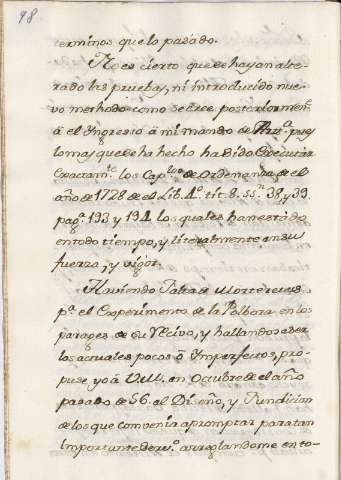 98
terminos que lo pasado.
No es cierto que se hayan alte-
rado las pruebas, ni introducido nue-
vo methodo como se cree posteriormen.te
â el Ingreso â mi mando de Art.a pues
lo mas que se ha hecho ha sido Executar
Exactam.te los Cap.los de Ordenanza de el
año de 1728 de el Lib. 4.o tit. 8. ss.n 38, y 39.
pag.s 133 y 134 los quales han estado
en todo tiempo, y literalmente en su
fuerza, y vigor.
Haviendo falta de Morteretes
p.a el Experimento de la Polbora en los
parages de su Recivo, y hallandose ser
los actuales pocos ô Imperfectos, pro-
puse yo â V.M. en Octubre de el año
pasado de 56. el Diseño, y Fundicion
de los que convenia aprontar para tan
Importante dere.o arreglandome en to-